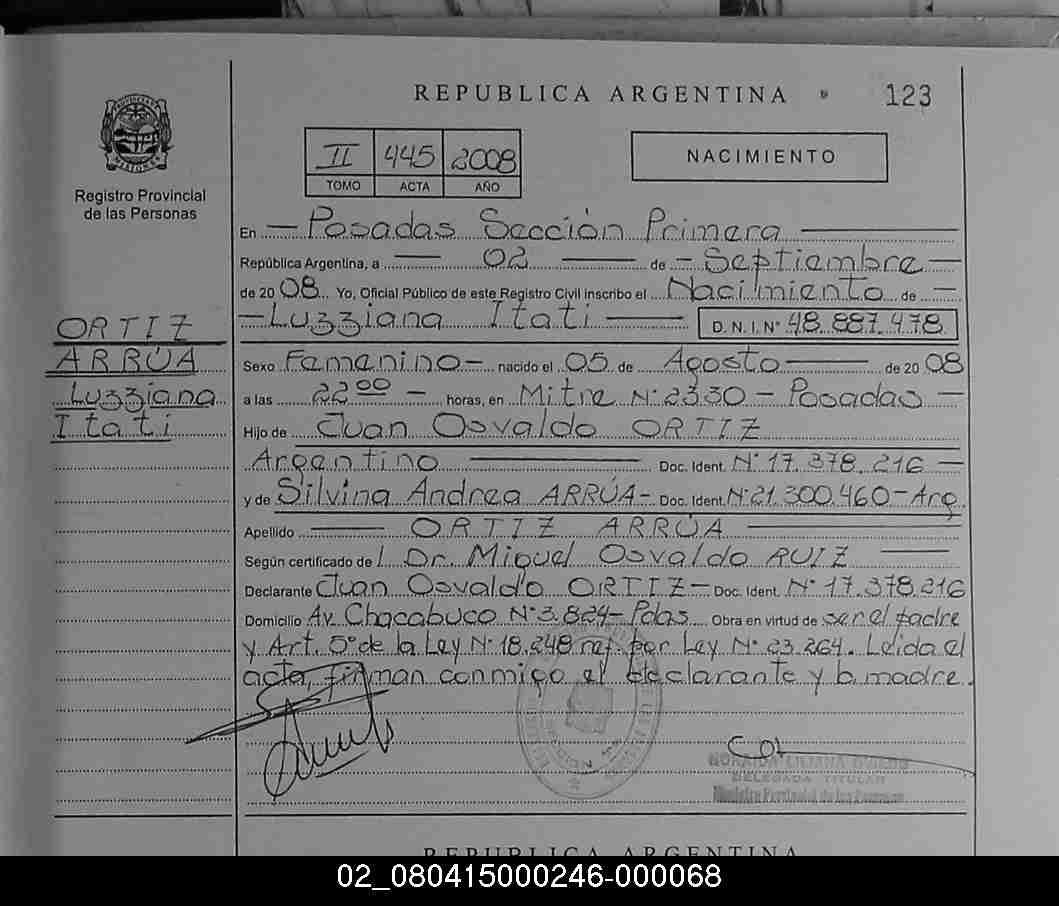 REPUBLICA ARGENTINA
123
PROVINCIA DE MISIONES
Registro Provincial
de las Personas
II 445 2008
TOMO ACTA AÑO
NACIMIENTO
En Posadas Sección Primera
República Argentina, a 02 de Septiembre
de 2008 Yo, Oficial Público de este Registro Civil inscribo el Nacimiento de
Luzziana Itati D. N. I. N° 48.887.478
ORTIZ
ARRÚA
Luzziana
Itati
Sexo Femenino nacido el 05 de Agosto de 2008
a las 22 00 horas, en Mitre N° 2330 - Posadas
Hijo de Juan Osvaldo ORTIZ
Argentino Doc. Ident. N° 17.378.216
y de Silvina Andrea ARRÚA - Doc. Ident. N° 21.300.460 - Arg
Apellido ORTIZ ARRÚA
Según certificado de l Dr. Miguel Osvaldo RUIZ
Declarante Juan Osvaldo ORTIZ - Doc. Ident. N° 17.378.216
Domicilio Av. Chacabuco N° 3.824 - Pdas. Obra en virtud de ser el padre
y Art. 5° de la Ley N° 18.248 ref. por Ley N° 23.264. Leída el
acta, firman conmigo el declarante y la madre.
NORAIDA LILIANA OVIEDO
DELEGADA TITULAR
Registro Provincial de las Personas
REPUBLICA ARGENTINA
02_080415000246-000068